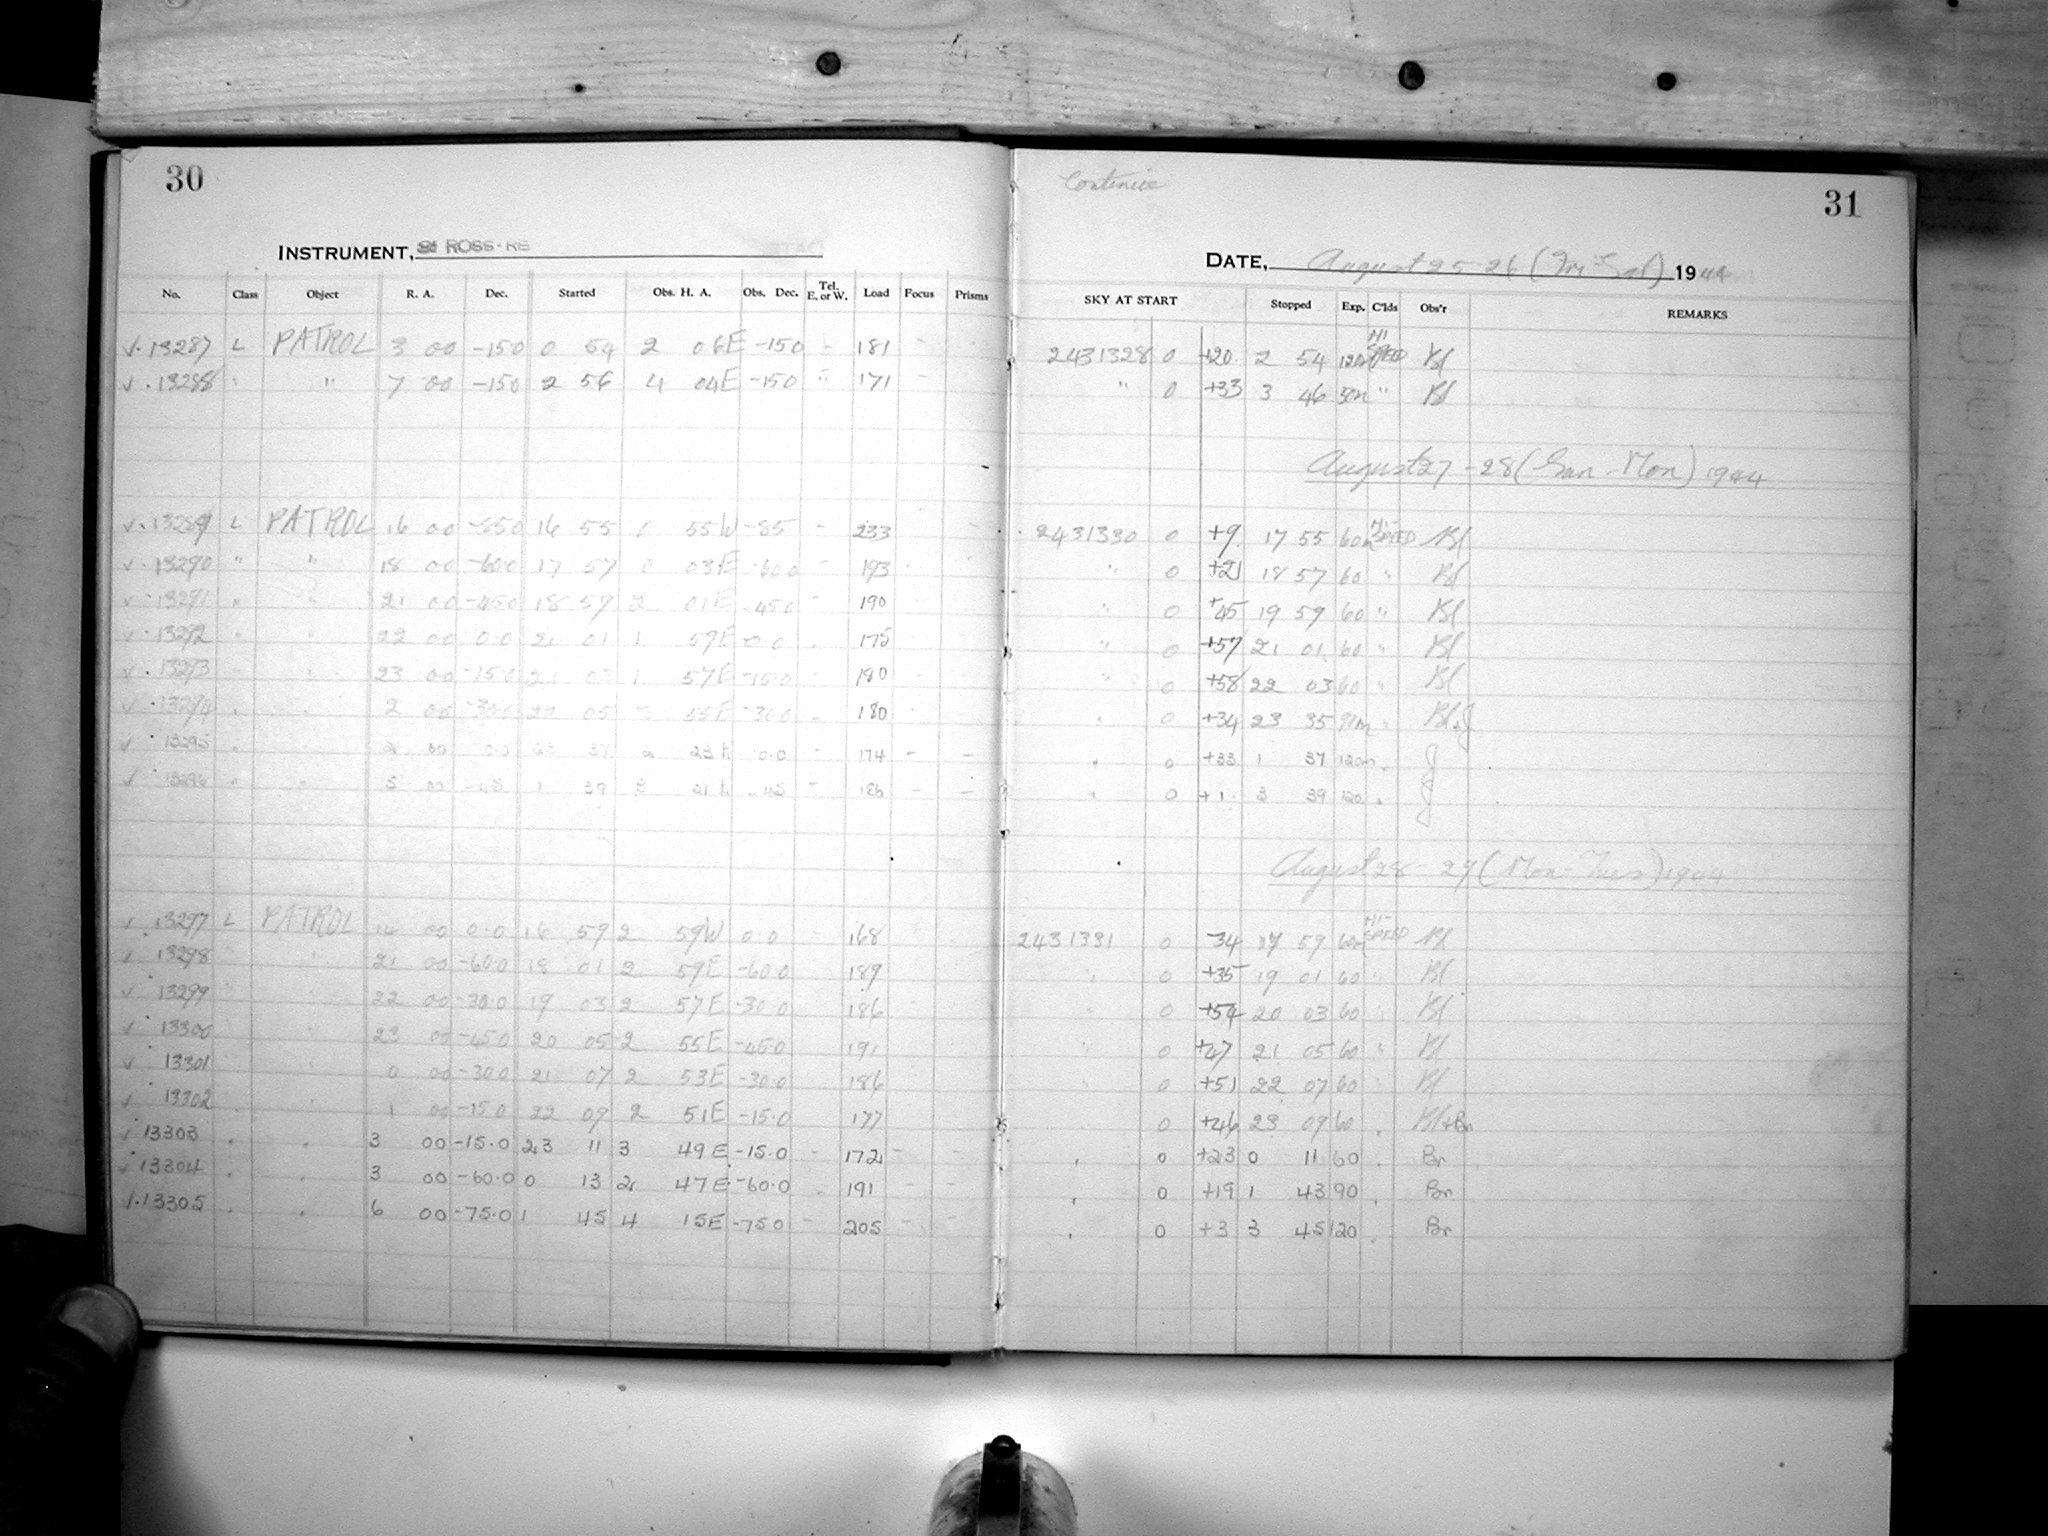 30
INSTRUMENT, ROSS-
No. Class Object R. A. Dec. Started Obs. H. A. Obs. Dec. Tel. E. or W. Load Focus Prisms
√·13287 L PATROL 3 00 -15.0 0 54 2 06E -15.0 181
√·13288 " " 7 00 -15.0 2 56 4 04E -15.0 171
√·13289 L PATROL 16 00 16 55 0 55W -85 233
√·13290 " " 18 00 -60.0 17 57 0 03E -60.0 193
√·13291 " " 21 00 -45.0 18 59 2 01E -45.0 190
√·13292 " " 22 00 0.0 01 1 59E 0.0 175
√·13293 23 00 -15.0 21 03 1 57E -15.0 180
√·13294 2 00 -30.0 22 05 3 55E -30.0 180
√ 13295 00 0.0 23 37 2 23E 0.0 174 - -
√·13296 5 00 -45 1 39 3 21E -45 186 - -
√ 13297 L PATROL 14 00 0.0 16 59 2 59W 0.0 168
√·13298 21 00 -60.0 18 01 2 59E -60.0 189
√ 13299 22 00 -30.0 19 03 2 57E -30.0 186
√ 13300 23 00 -45.0 20 05 2 55E -45.0 191
√ 13301 0 00 -30.0 21 07 2 53E -30.0 186
√ 13302 1 00 -15.0 22 09 2 51E -15.0 177
√ 13303 " " 3 00 -15.0 23 11 3 49E -15.0 172 - -
√·13304 " " 3 00 -60.0 0 13 2 47E -60.0 191 - -
√·13305 " " 6 00 -75.0 1 45 4 15E -75.0 205 - -
Continue
31
DATE, August 25-26 (Fri-Sat) 1944
SKY AT START Stopped Exp. C'lds Obs'r REMARKS
2431328 0 +20 2 54 120m HI SPEED Bl
" 0 +33 3 46 50m " Bl
August 27-28 (Sun-Mon) 1944
2431330 0 +9 17 55 60m HI-SPEED Bl
" 0 +21 18 57 60 " Bl
" 0 +45 19 59 60 " Bl
" 0 +57 21 01 60 " Bl
" 0 +58 22 03 60 " Bl
" 0 +34 23 35 " Bl+J
" 0 +33 1 37 120m " J
" 0 +1 3 39 120 " J
August 28-29 (Mon-Tues) 1944
2431331 0 34 17 59 60m HI-SPEED Bl
" 0 +35 19 01 60 " Bl
" 0 20 03 60 " Bl
" 0 +47 21 05 60 " Bl
" 0 +51 22 07 60 " Bl
0 +46 23 09 60 " Bl+Br
" 0 +23 0 11 60 " Br
" 0 +19 1 43 90 " Br
" 0 +3 3 45 120 " Br